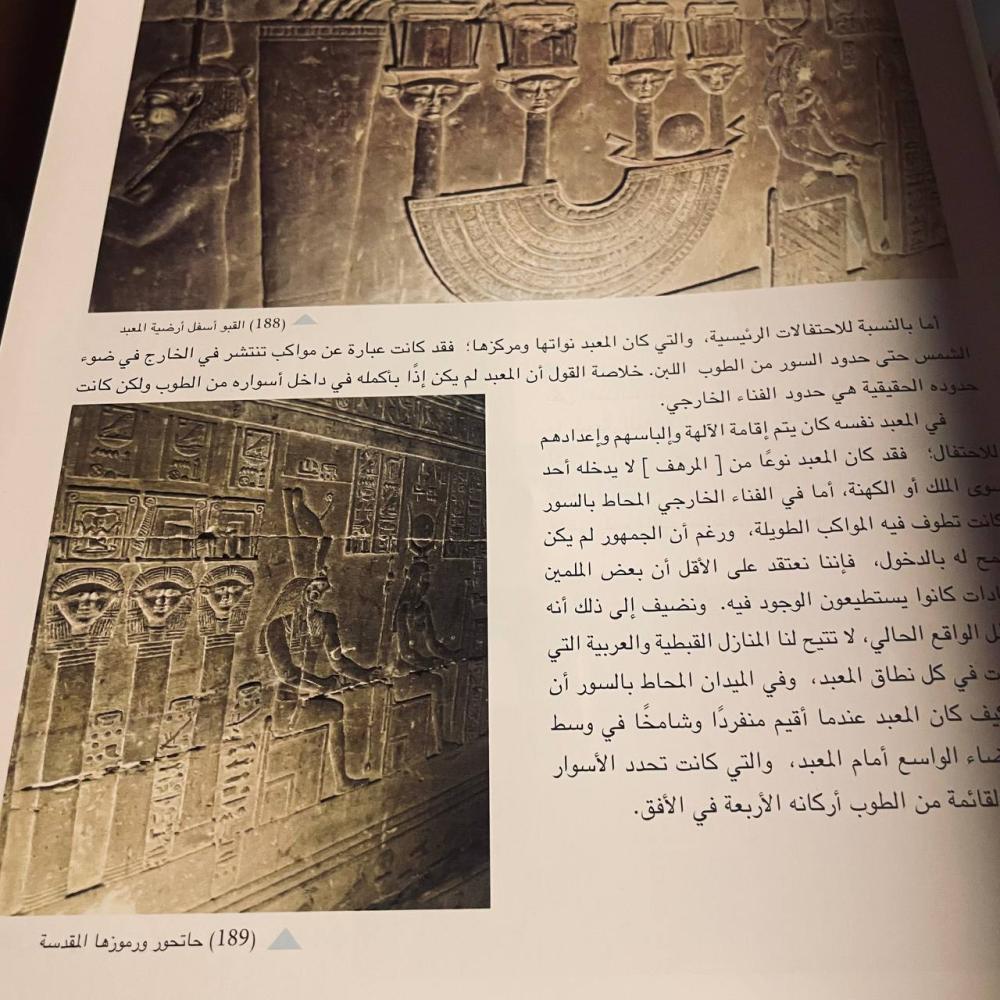 (188) القبو أسفل أرضية المعبد
أما بالنسبة للاحتفالات الرئيسية، والتي كان المعبد نواتها ومركزها؛ فقد كانت عبارة عن مواكب تنتشر في الخارج في ضوء
الشمس حتى حدود السور من الطوب اللبن. خلاصة القول أن المعبد لم يكن إذًا بأكمله في داخل أسواره من الطوب ولكن كانت
حدوده الحقيقية هي حدود الفناء الخارجي.
في المعبد نفسه كان يتم إقامة الآلهة وإلباسهم وإعدادهم
للاحتفال؛ فقد كان المعبد نوعًا من [ المرهف ] لا يدخله أحد
سوى الملك أو الكهنة، أما في الفناء الخارجي المحاط بالسور
تطوف فيه المواكب الطويلة، ورغم أن الجمهور لم يكن
له بالدخول، فإننا نعتقد على الأقل أن بعض الملمين
كانوا يستطيعون الوجود فيه. ونضيف إلى ذلك أنه
الواقع الحالي، لا تتيح لنا المنازل القبطية والعربية التي
في كل نطاق المعبد، وفي الميدان المحاط بالسور أن
كان المعبد عندما أقيم منفردًا وشامخًا في وسط
الواسع أمام المعبد، والتي كانت تحدد الأسوار
القائمة من الطوب أركانه الأربعة في الأفق.
(189) حاتحور ورموزها المقدسة